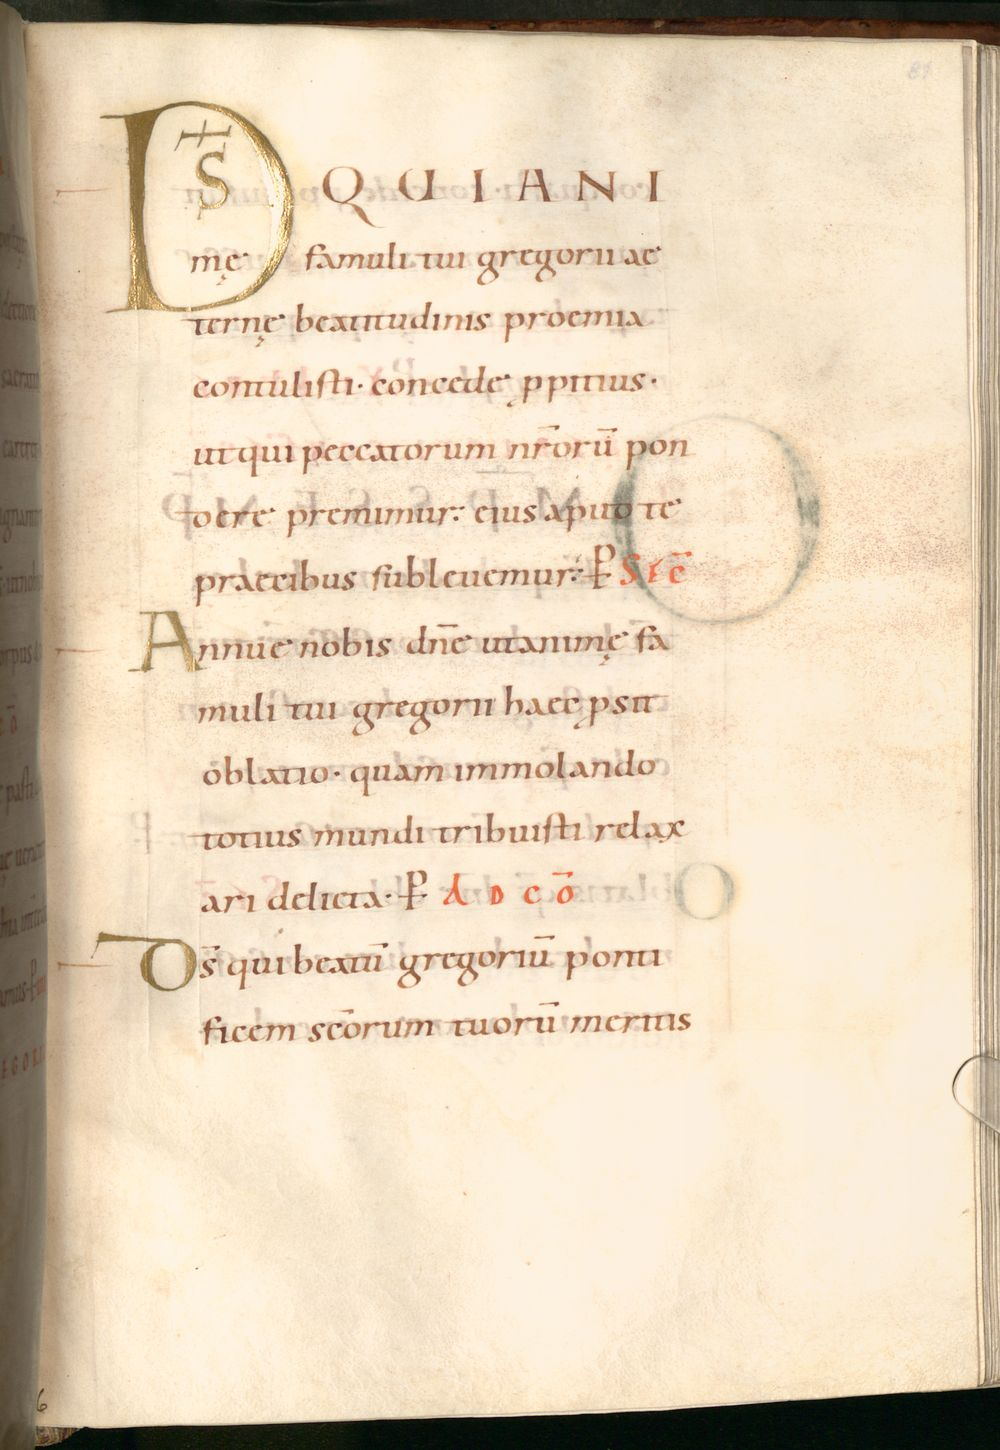 DS̄ QUIANI
mę famuli tui gregorii ae
ternę beatitudinis proemia
contulisti· concede ꝓpitius·
ut qui peccatorum nr̄orū pon
dere premimur: eius aput te
praecibus subleuemur: ᵱ SEC̄
Annue nobis dn̄e ut animę fa
muli tui gregorii haec ꝓsit
oblatio· quam immolando
totius mundi tribuisti relax
ari delicta· ᵱ AD CŌ
Ds̄ qui beatū gregoriū ponti
ficem sc̄orum tuorū meritis